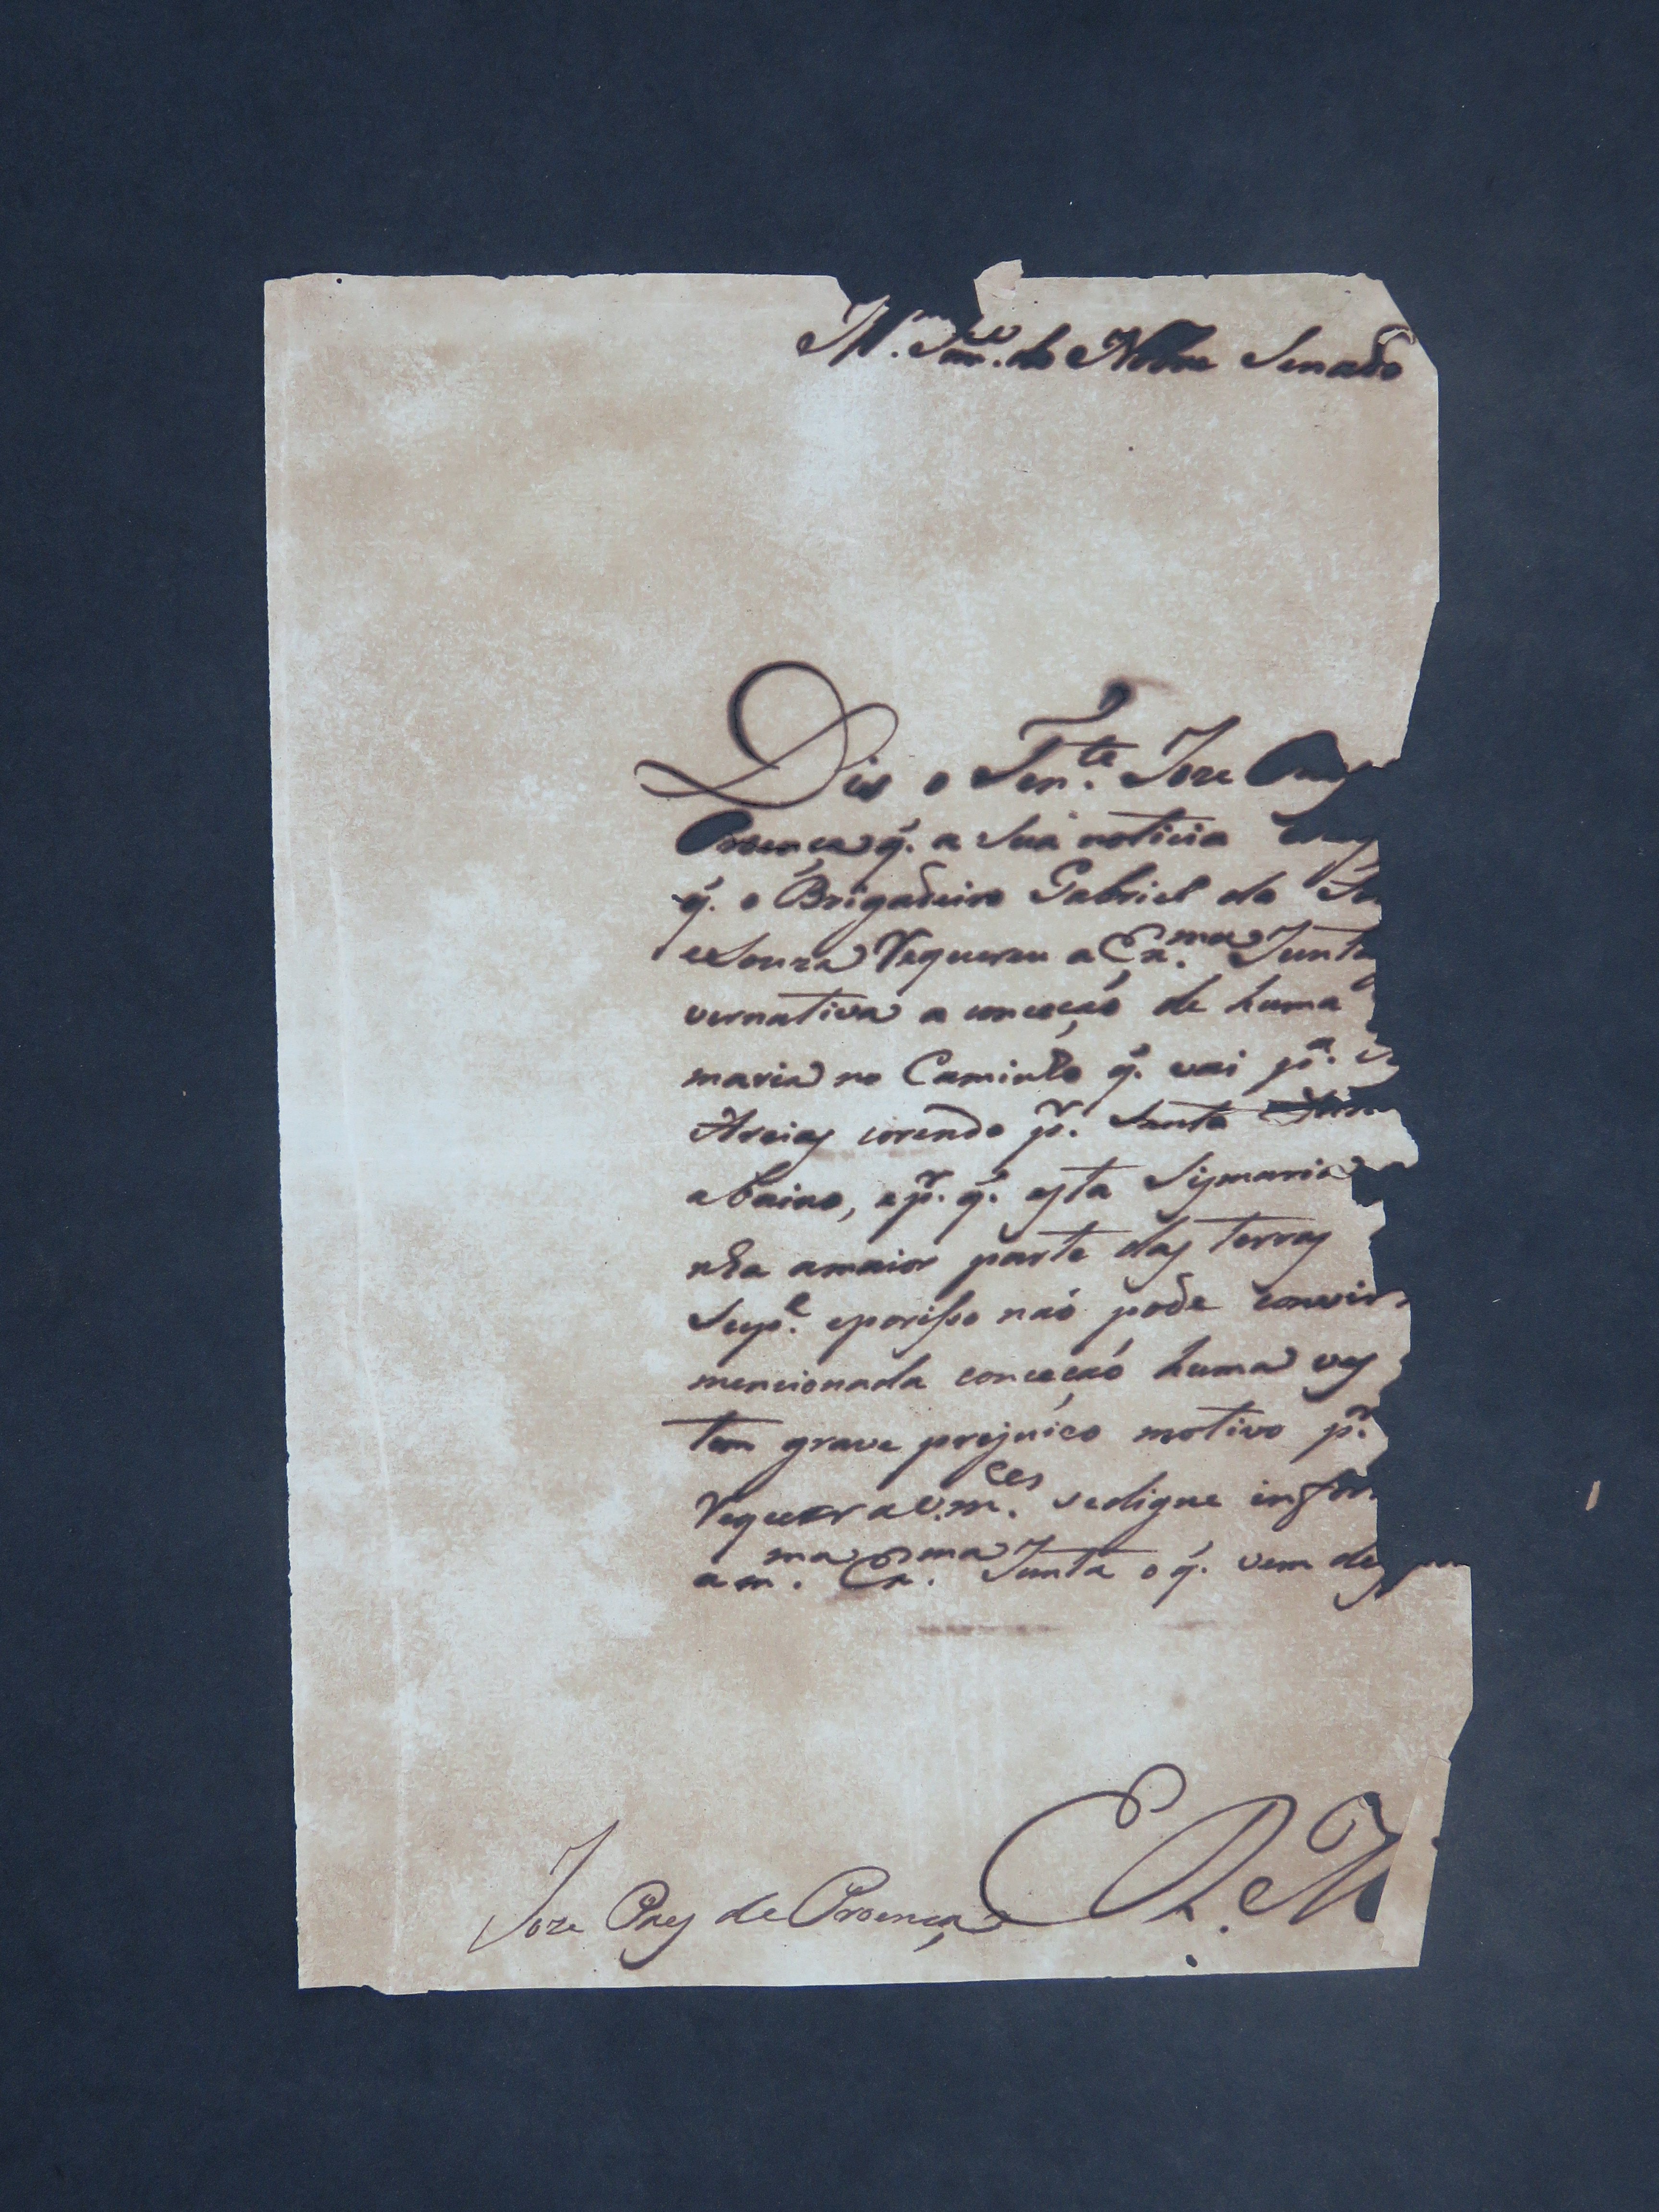 Ill.mo Sen.do do Nobre Senado
Dis o Ten.te Joze Paes
Proença q. a Sua noticia
q. o Brigadeiro Gabriel da
e Souza Requereu a Ex.ma Junta
vernativa a conceçaó de huma
maria no Caminho q. vai p.a
Areias corendo p.r Santa
abaixo, e p.r q. esta Sismaria
nha a maior parte das terras
Sup.e eporisso naó pode convir
mencionada conceçaó huma ves
tem grave prejuico motivo p.r
Requerer a V.m.ces sedigne infor
a m.ma Ex.ma Junta o q. vem de
E R M
Joze Paes de Proença